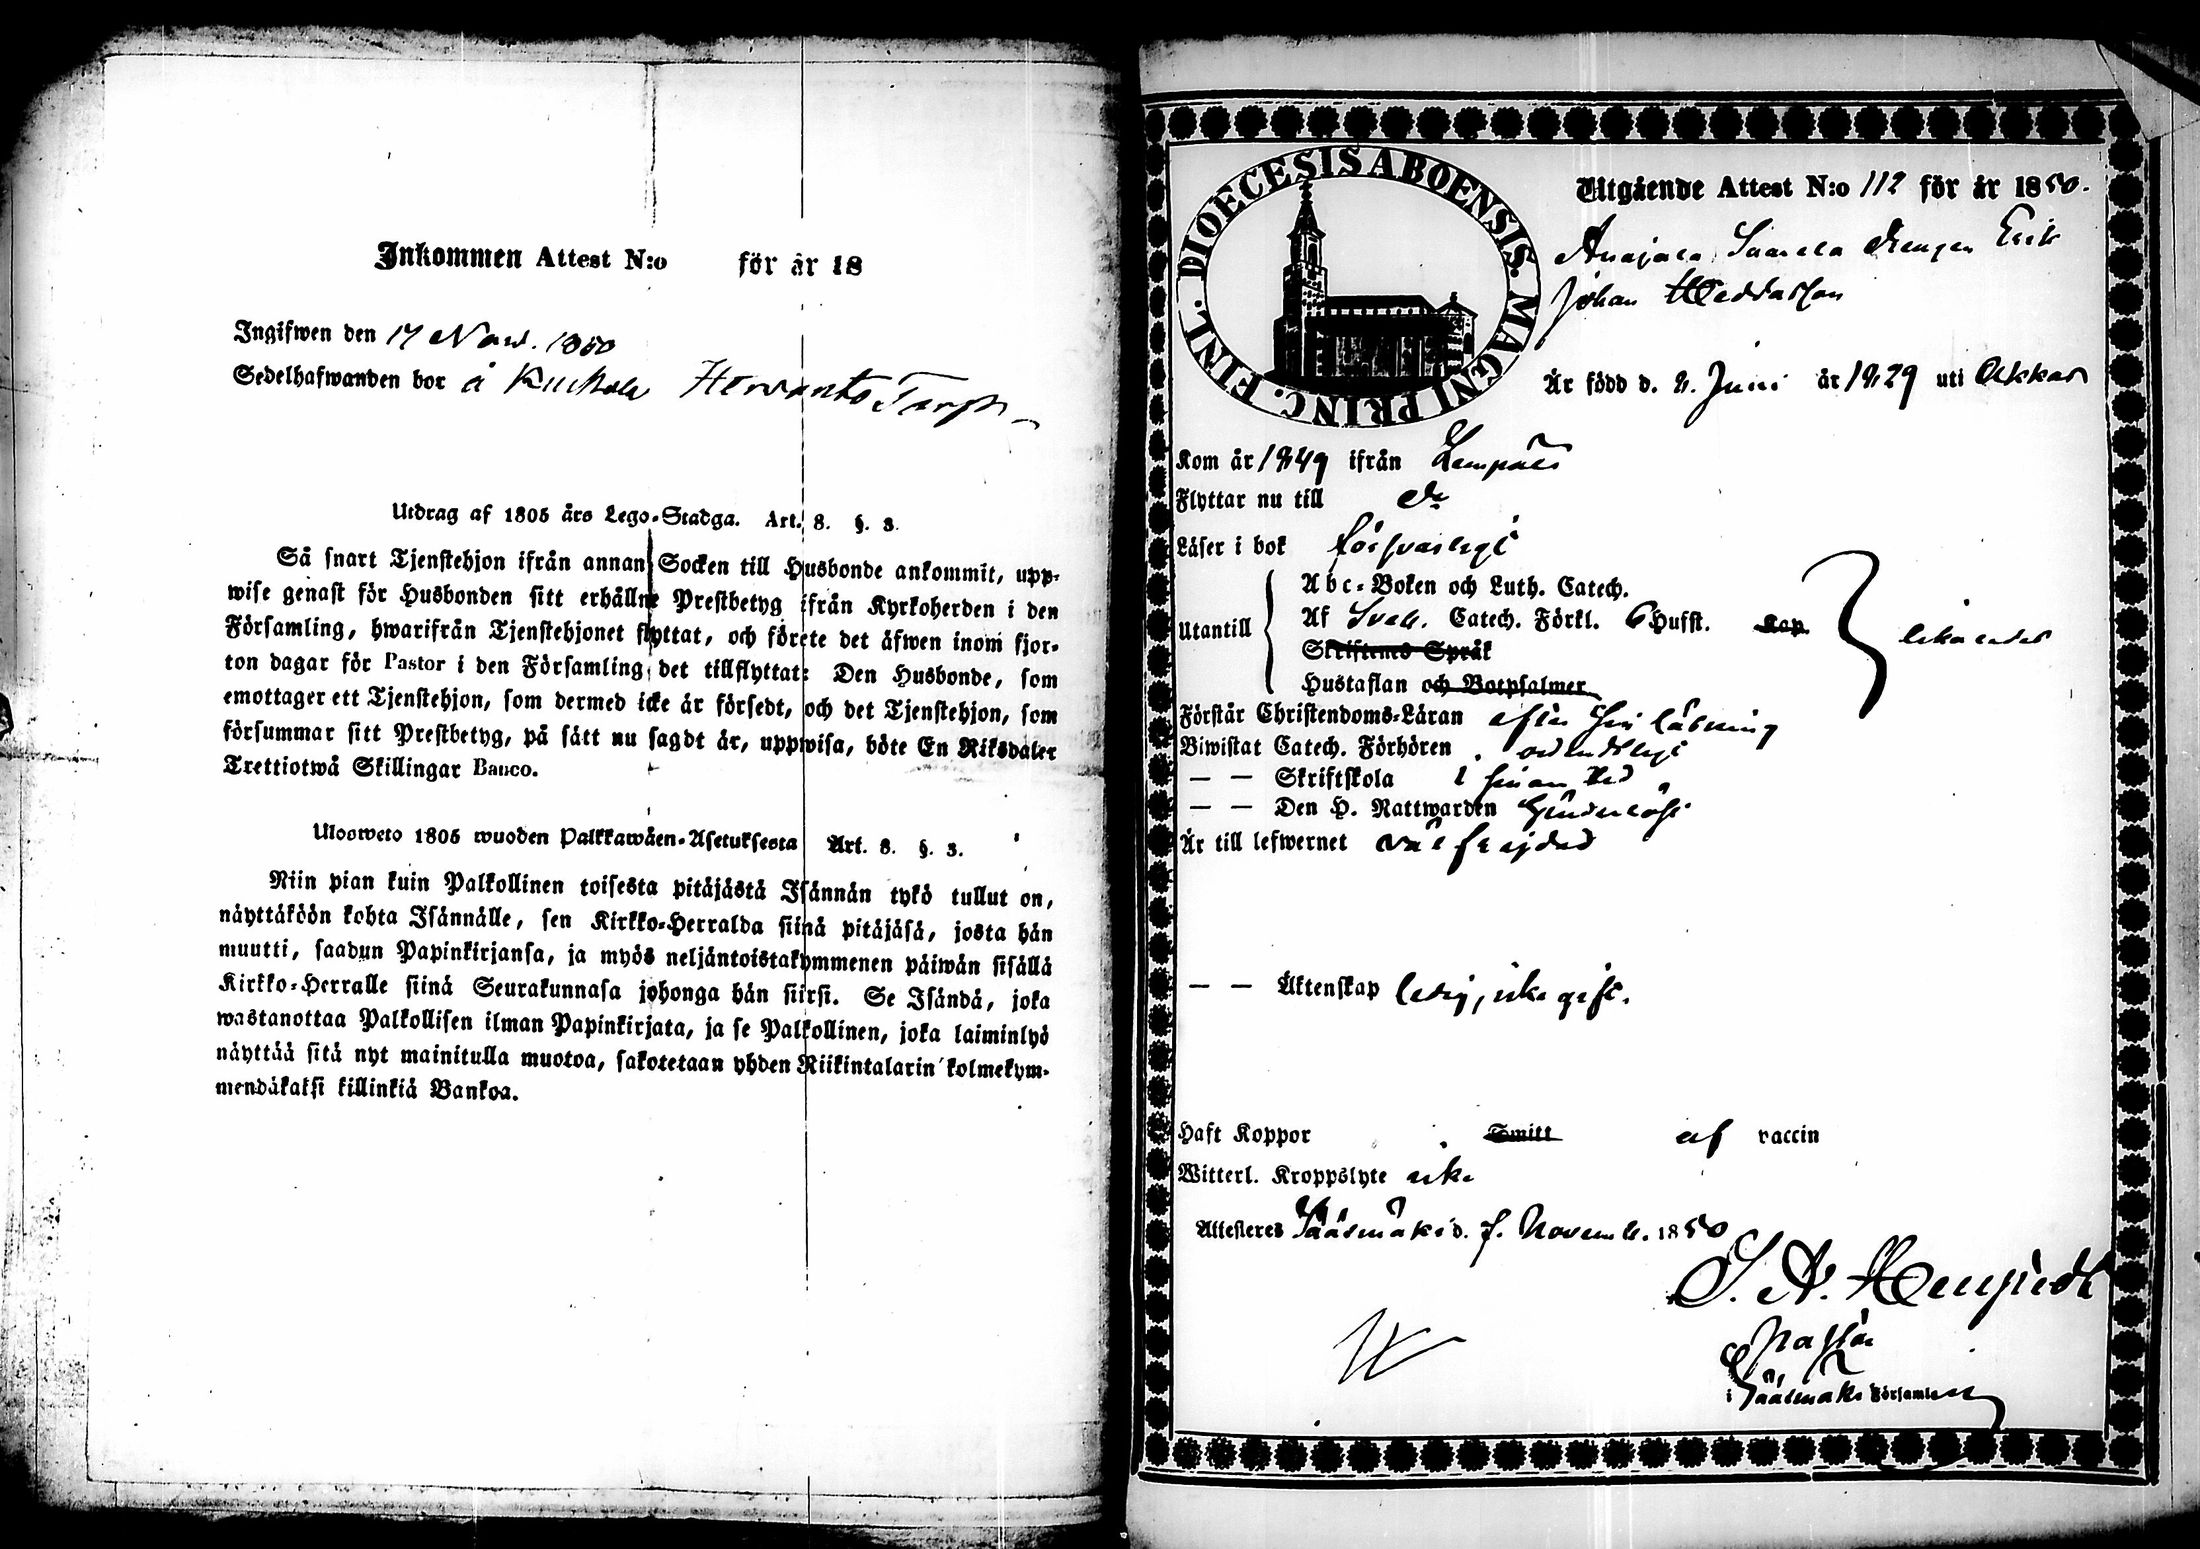 Inkommen Attest N:o för år 18
Ingifwen den 17 Nov. 1850
Sedelhafwanden bor å Kuckola Hervanto Torp
Utdrag af 1805 års Lego-Stadga. Art. 8. §. 3.
Så snart Tjenstehjon ifrån annan Socken till Husbonde ankommit, upp-
wise genast för Husbonden sitt erhållne Prestbetyg ifrån Kyrkoherden i den
Församling, hwarifrån Tjenstehjonet flyttat, och förete det äfwen inom fjor-
ton dagar för Pastor i den Församling det tillflyttat: Den Husbonde, som
emottager ett Tjenstehjon, som dermed icke är försedt, och det Tjenstehjon, som
försummar sitt Prestbetyg, på sätt nu sagdt är, uppwisa, böte En Riksdaler
Trettiotwå Skillingar Banco.
Ulosweto 1805 wuoden Palkkawäen-Asetuksesta Art. 8. §. 3.
Niin pian kuin Palkollinen toisesta pitäjästä Isännän tykö tullut on,
näyttäköön kohta Isännälle, sen Kirkko-Herralda siinä pitäjäsä, josta hän
muutti, saadun Papinkirjansa, ja myös neljäntoistakymmenen päiwän sisällä
Kirkko-Herralle siinä Seurakunnasa johonga hän siirsi. Se Isändä, joka
wastanottaa Palkollisen ilman Papinkirjata, ja se Palkollinen, joka laiminlyö
näyttää sitä nyt mainitulla muotoa, sakotetaan yhden Riikintalarin kolmekym-
mendäkaksi killinkiä Bankoa.
DIOECESIS ABOENSIS. MAGNI PRINC. FINL.
Utgående Attest N:o 112 för år 1850.
Annjala Drengen Erik
Johan
Är född d. 2. Juni år 1829 uti Akkas
Kom år 1849 ifrån Lempäla
Flyttar nu till do
Läser i bok försvarligt
Utantill
Abc-Boken och Luth. Catech.
Af Sveb. Catech. Förkl. 6 Hufst. Kap.
Skriftenes Språk
Hustaflan och Botpsalmer
Förstår Christendoms-Läran efter sin läsning
Biwistat Catech. Förhören ordentligt
— — Skriftskola i sinom tid
— — Den H. Nattwarden
Är till lefwernet väl frejdad
— — Äktenskap ledig, icke gift.
Haft Koppor Smitt af vaccin
Witterl. Kroppslyte icke
Attesteres Sääsmäki d. 7. Novemb. 1850
Pastor
i Sääsmäki Församling